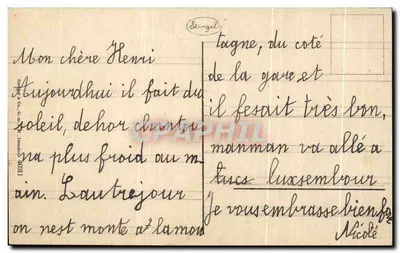 Mon chère Henri
Aujourdhui il fait du
soleil, dehor
na plus froid au m
ain. Lautrejour
on nest monte a la mon
tagne, du coté
de la gare et
il fesait très bon,
manman va allé a
tucs luxsembour
Je vousembrasse bien
Nicolé